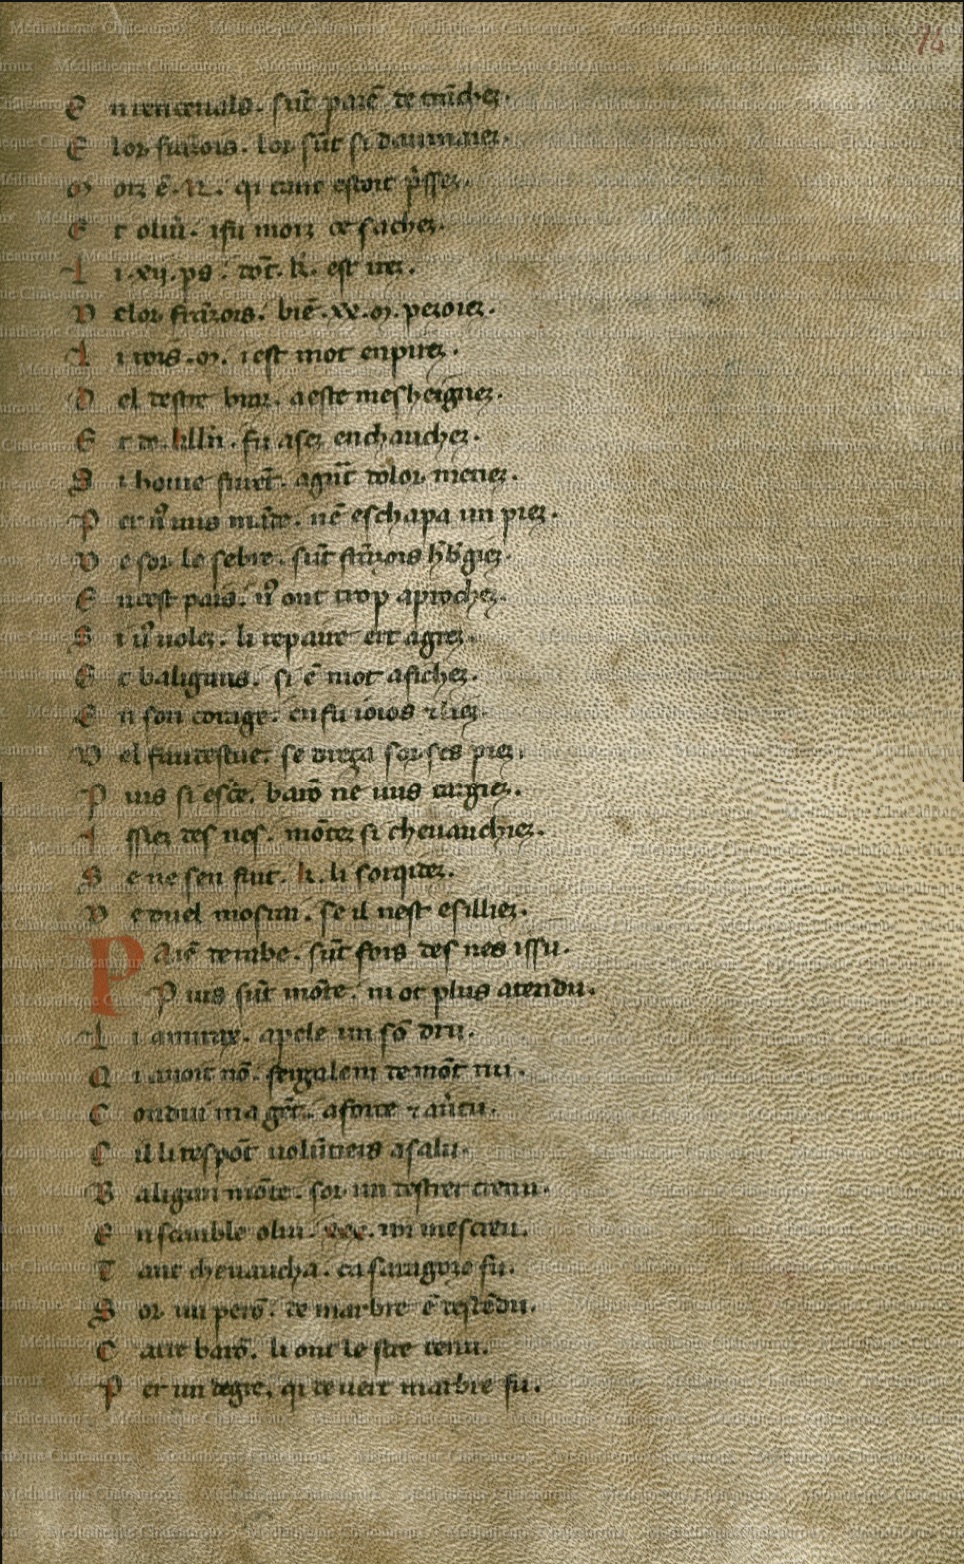 74
E n renceuals. sūt parē de trāchez.
E lor frāzois. lor sūt si daumaiez.
M orz ē. R. qi tant estoit p̄ssez.
E t oliū. ifu morz ce sachez.
L i .xij. ps. dōt. k̄. est irez.
D e lor frāzois. biē .xx. M. peroiez.
L i rois. M. i est mot enpirez.
D el destre braz. a este mesheignez.
E t de. kllm̄. fu asez enchauchez.
S i home furēt. a grāt dolor menez.
P er uīuus māde. nē eschapa un piez.
D e sor le sebre. sūt frāzois hb̄giez.
E n cest pais. nos ont trop aprochez.
S i uos uolez. li repaire ert agrez.
E t baligans. si ē mot afichez.
E n son corage. en fu ioios ⁊ liez.
D el faudestue. se dreza sor ses piez.
P uis si escrie. barō ne uus targiez.
I ssiez des nes. mōtez si cheuauchiez.
S e ne sen fuit. k. li sorqidez.
D e duel morrai. se il nest esilliez.
P Aiē de nube. sūt fors des nes issu.
P uis sūt mōte. ni ot plus atendu.
L i amiraz. apele un sō dru.
Q i auoit nō. 
C ondui ma gēt. a force ⁊ a u̾tu.
C il li respōt uolūtiers a salu.
B aligan mōte. sor un destrer crenu.
E nsamble o lui. xxx. mi mescreu.
T ant cheuaucha. ca saragoze fu.
S or un perō. de marbre ē descēdu.
C atre barō. li ont le stre tenu.
P er un degre. qi de uert marbre fu.